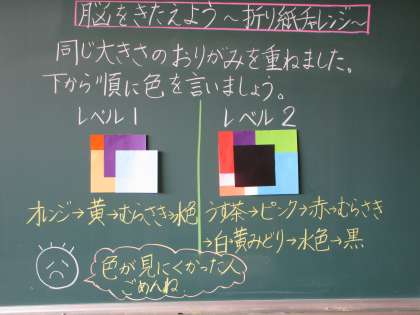 脳をきたえよう～折り紙チャレンジ～
同じ大きさのおりがみを重ねました。
下から順に色を言いましょう。
レベル1
レベル2
オレンジ→黄→むらさき→水色
うす茶→ピンク→赤→むらさき
→白→黄みどり→水色→黒
色が見にくかった人
ごめんね